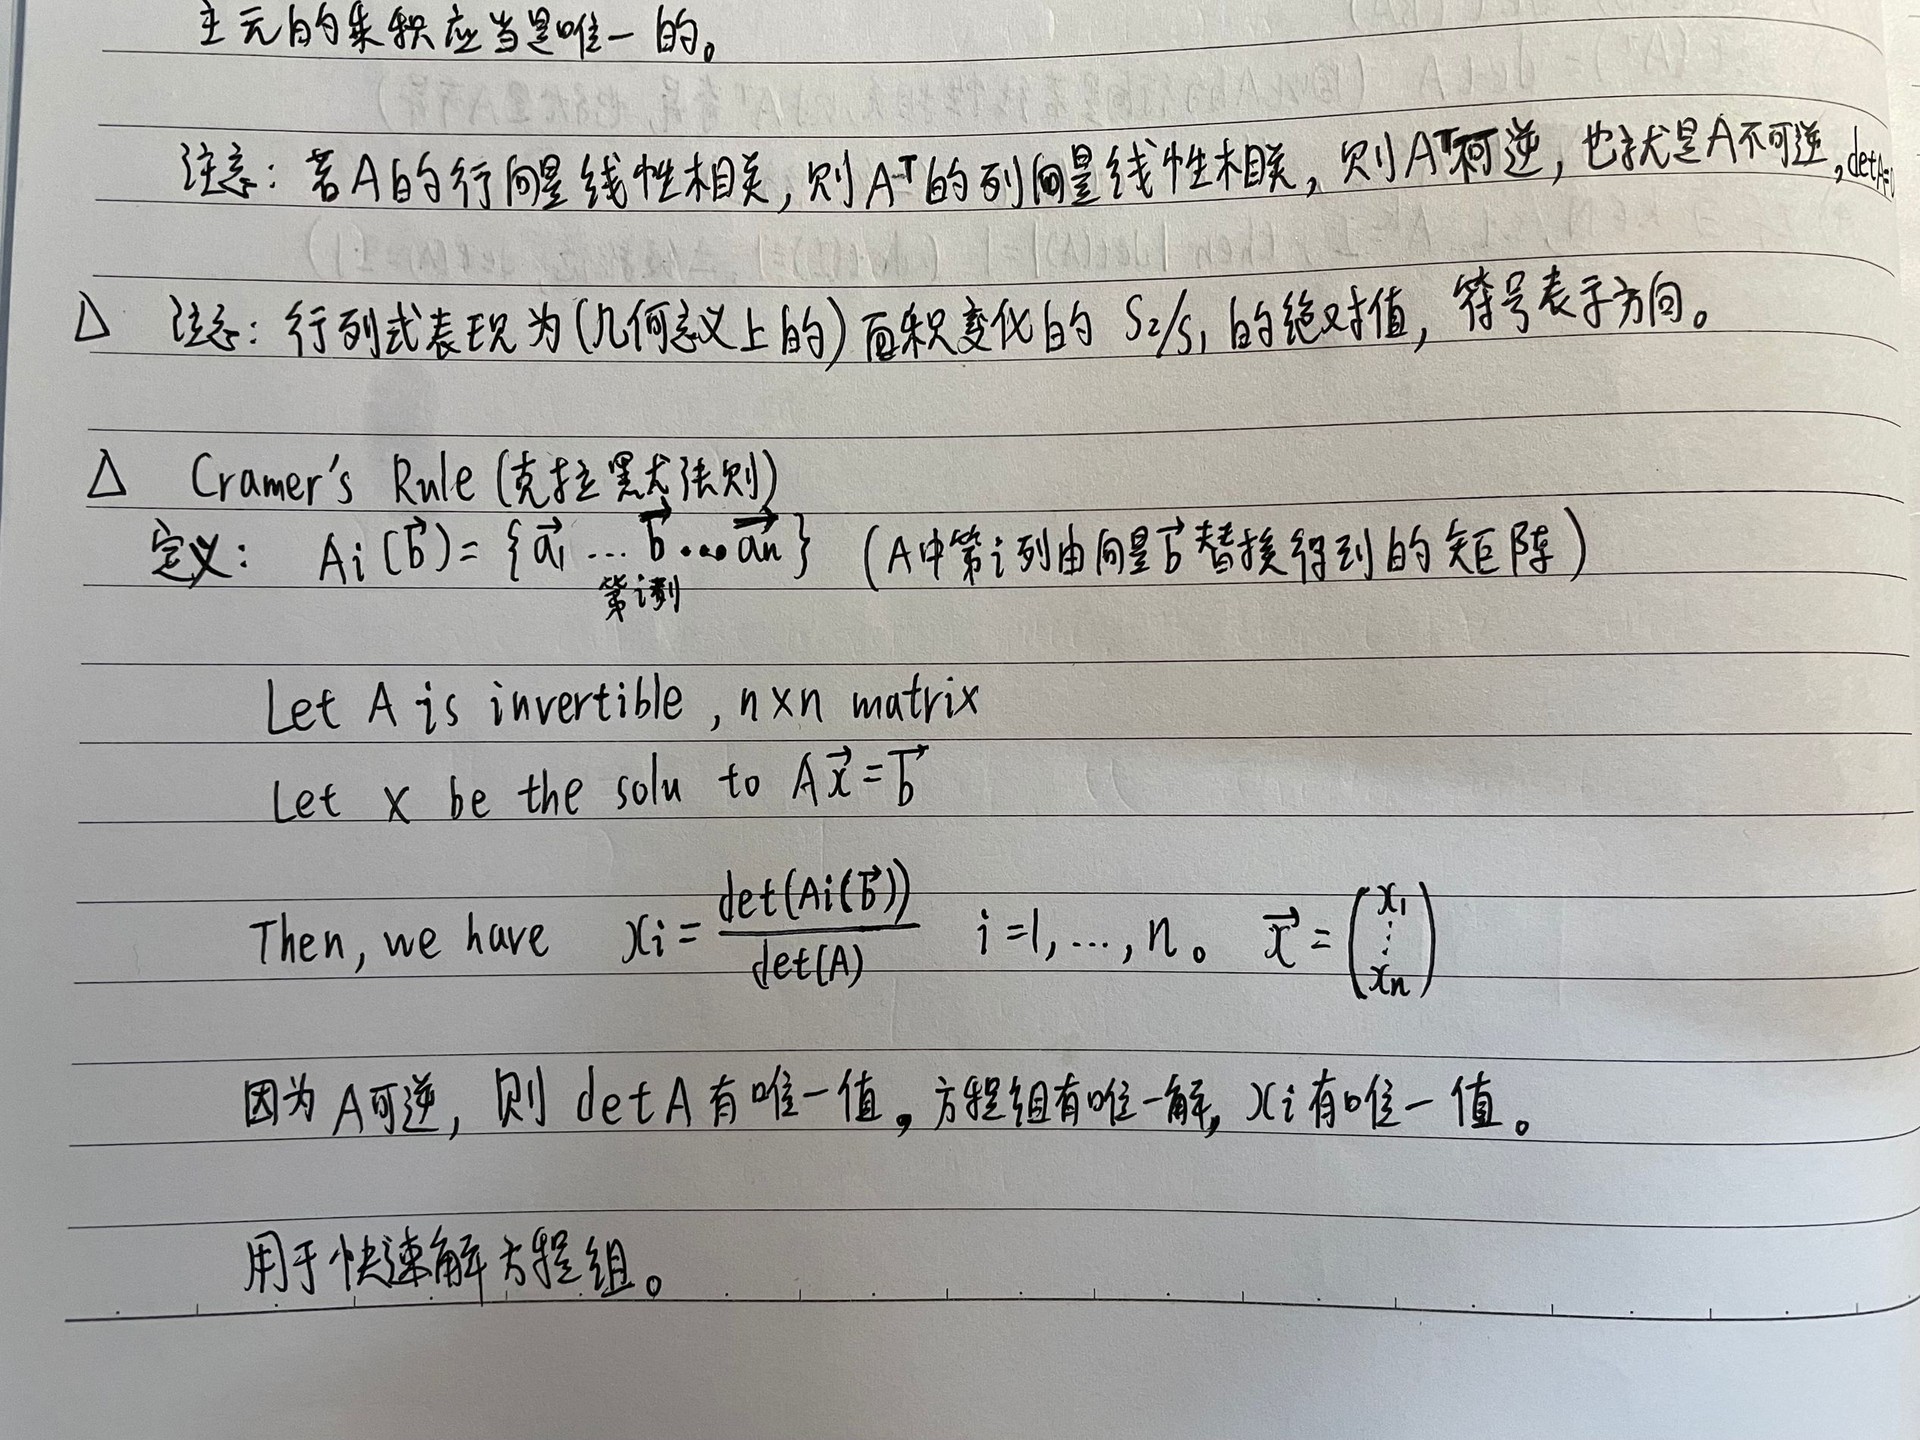 主元的乘积应当是唯一的。
注意：若A的行向量线性相关，则Aᵀ的列向量线性相关，则Aᵀ不可逆，也就是A不可逆，detA=0
△ 注意：行列式表现为(几何意义上的)面积变化的 S₂/S₁ 的绝对值，符号表示方向。
△ Cramer's Rule (克拉默法则)
定义： Aᵢ(b⃗) = {a⃗₁ ... b⃗ ... a⃗ₙ} (A中第i列由向量b⃗替换得到的矩阵)
第i列
Let A is invertible, n×n matrix
Let x be the solu to Ax⃗=b⃗
Then, we have xᵢ = det(Aᵢ(b⃗)) / det(A) i=1, ..., n。 x⃗ = (x₁ ⋮ xₙ)
因为A可逆，则 detA有唯一值。方程组有唯一解，xᵢ有唯一值。
用于快速解方程组。